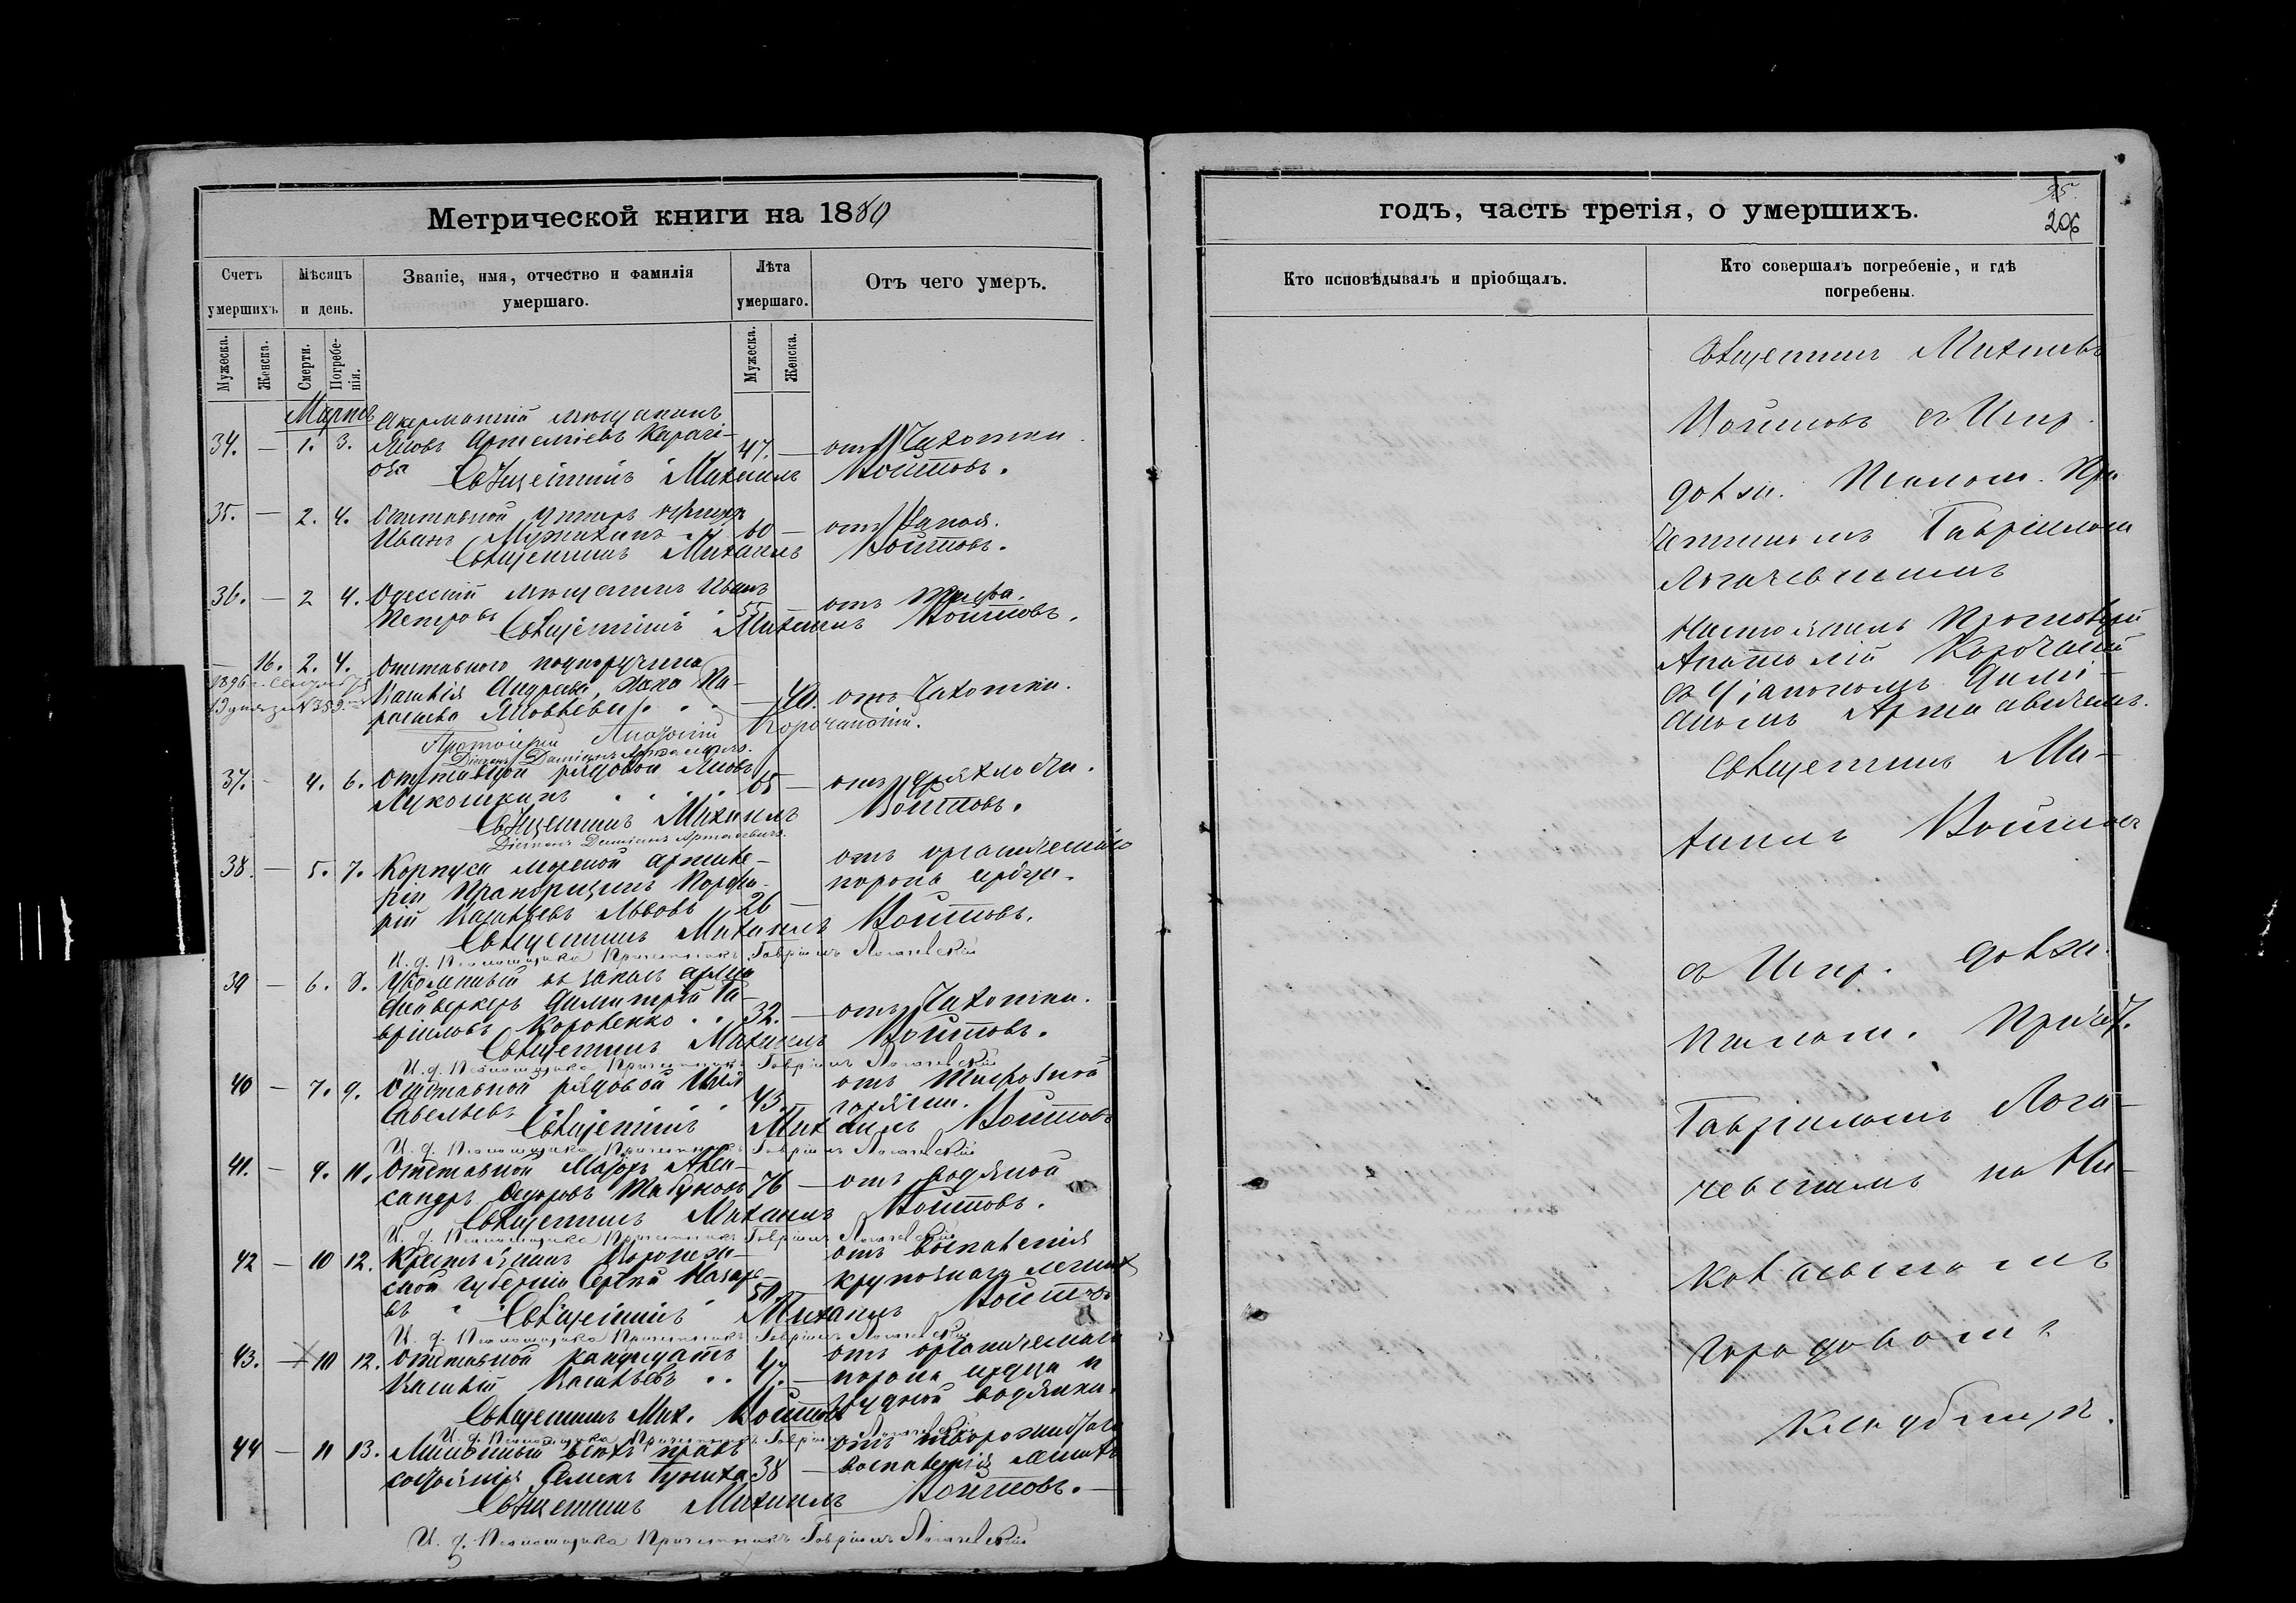 Метрической книги на 1880
Счетъ умершихъ.
Мѣсяцъ и день.
Званіе, имя, отчество и фамилія умершаго.
Лѣта умершаго.
Отъ чего умеръ.
Мужеска.
Женска.
Смерти.
Погребенія.
Мужеска.
Женска.
Мартъ
34. — 1. 3. Акерманскій мѣщанинъ
Яковъ Артеміевъ 47. — отъ Чахотки.
Священникъ Михаилъ Войтовъ.
35. — 2. 4. Отставной унтеръ офицеръ
Иванъ 60 —
Священникъ Михаилъ Войтовъ.
36. — 2 4. Одесскій мѣщанинъ Иванъ
Петровъ 55 — отъ тифа.
Священникъ Михаилъ Войтовъ.
— 16. 2. 4. Отставного подпоручика
Василія Андреева жена Па-
— 40. отъ Чахотки.
Протоіерей Анатолій Корочанскій.
Діаконъ Даміанъ Арташевичъ.
37. — 4. 6. Отставной рядовой Яковъ
Лукошкинъ 65 — отъ дряхлости.
Священникъ Михаилъ Войтовъ.
Діаконъ Даміанъ Арташевичъ.
38. — 5. 7. Корпуса морской артилле-
ріи Прапорщикъ Порфи-
рій Васильевъ Львовъ 26 — отъ органическаго
порока сердца.
Священникъ Михаилъ Войтовъ.
И. д. Псаломщика Причетникъ Гавріилъ Логачевскій
39 — 6. 8. Уволенный въ запасъ арміи
фейверкеръ Димитрій Га-
вріиловъ Коровенко 32. — отъ Чахотки.
Священникъ Михаилъ Войтовъ.
И. д. Псаломщика Причетникъ Гавріилъ Логачевскій
40 — 7. 9. Отставной рядовой Илья
Савельевъ 43. отъ тифозной
горячки.
Священникъ Михаилъ Войтовъ
И. д. Псаломщика Причетникъ Гавріилъ Логачевскій
41. — 9. 11. Отставной Маіоръ Алек-
сандръ Федоровъ 76 — отъ водяной
Священникъ Михаилъ Войтовъ.
И. д. Псаломщика Причетникъ Гавріилъ Логачевскій
42 — 10 12. Крестьянинъ Воронеж-
ской губерніи Сергѣй Назаро-
въ 50. отъ воспаленія
крупознаго легкихъ
Священникъ Михаилъ Войтовъ
И. д. Псаломщика Причетникъ Гавріилъ Логачевскій
43. — 10 12. Отставной кандидатъ
Василій Васильевъ 47. — отъ органическаго
порока сердца и
грудной водянки.
Священникъ Мих. Войтовъ
И. д. Псаломщика Причетникъ Гавріилъ Логачевскій
44 — 11 13. Лишенный всѣхъ правъ
состоянія Семенъ 38 — отъ творожистаго
воспаленія легкихъ
Священникъ Михаилъ Войтовъ.
И. д. Псаломщика Причетникъ Гавріилъ Логачевскій
годъ, часть третія, о умершихъ.
206
Кто исповѣдывалъ и пріобщалъ.
Кто совершалъ погребеніе, и гдѣ погребены.
Священникъ Михаилъ
Войтовъ съ Испр.
должн. Псалом. При-
четникомъ Гавріиломъ
Логачевскимъ
Настоятель Протоіерей
Анатолій Корочанскій
съ Діакономъ Дамі-
аномъ Арташевичемъ.
Священникъ Ми-
хаилъ Войтовъ
съ Испр. должн.
Псалом. Причет.
Гавріиломъ Лога-
чевскимъ на Ни-
колаевскомъ
городовомъ
кладбищѣ.